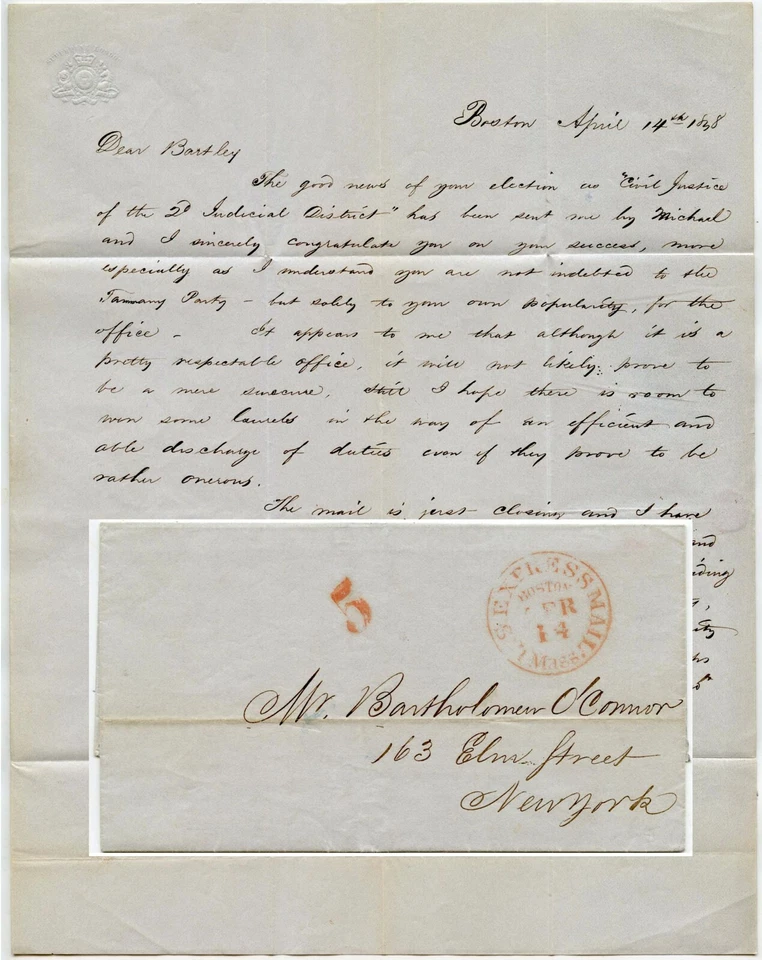 Boston April 14th 1848
Dear Bartley
The good news of your election as "Civil Justice
of the 2d Judicial District" has been sent me by Michael
and I sincerely congratulate you on your success, more
especially as I understand you are not indebted to the
Tammany Party - but solely to your own popularity, for the
office - It appears to me that although it is a
pretty respectable office, it will not likely prove to
be a mere sinecure, still I hope there is room to
win some laurels in the way of an efficient and
able discharge of duties even if they prove to be
rather onerous.
The mail is just closing and I have
and
5
U.S EXPRESS MAIL.
BOSTON
APR
14
Mass.
Mr. Bartholomew O'Connor
163 Elm Street
New York